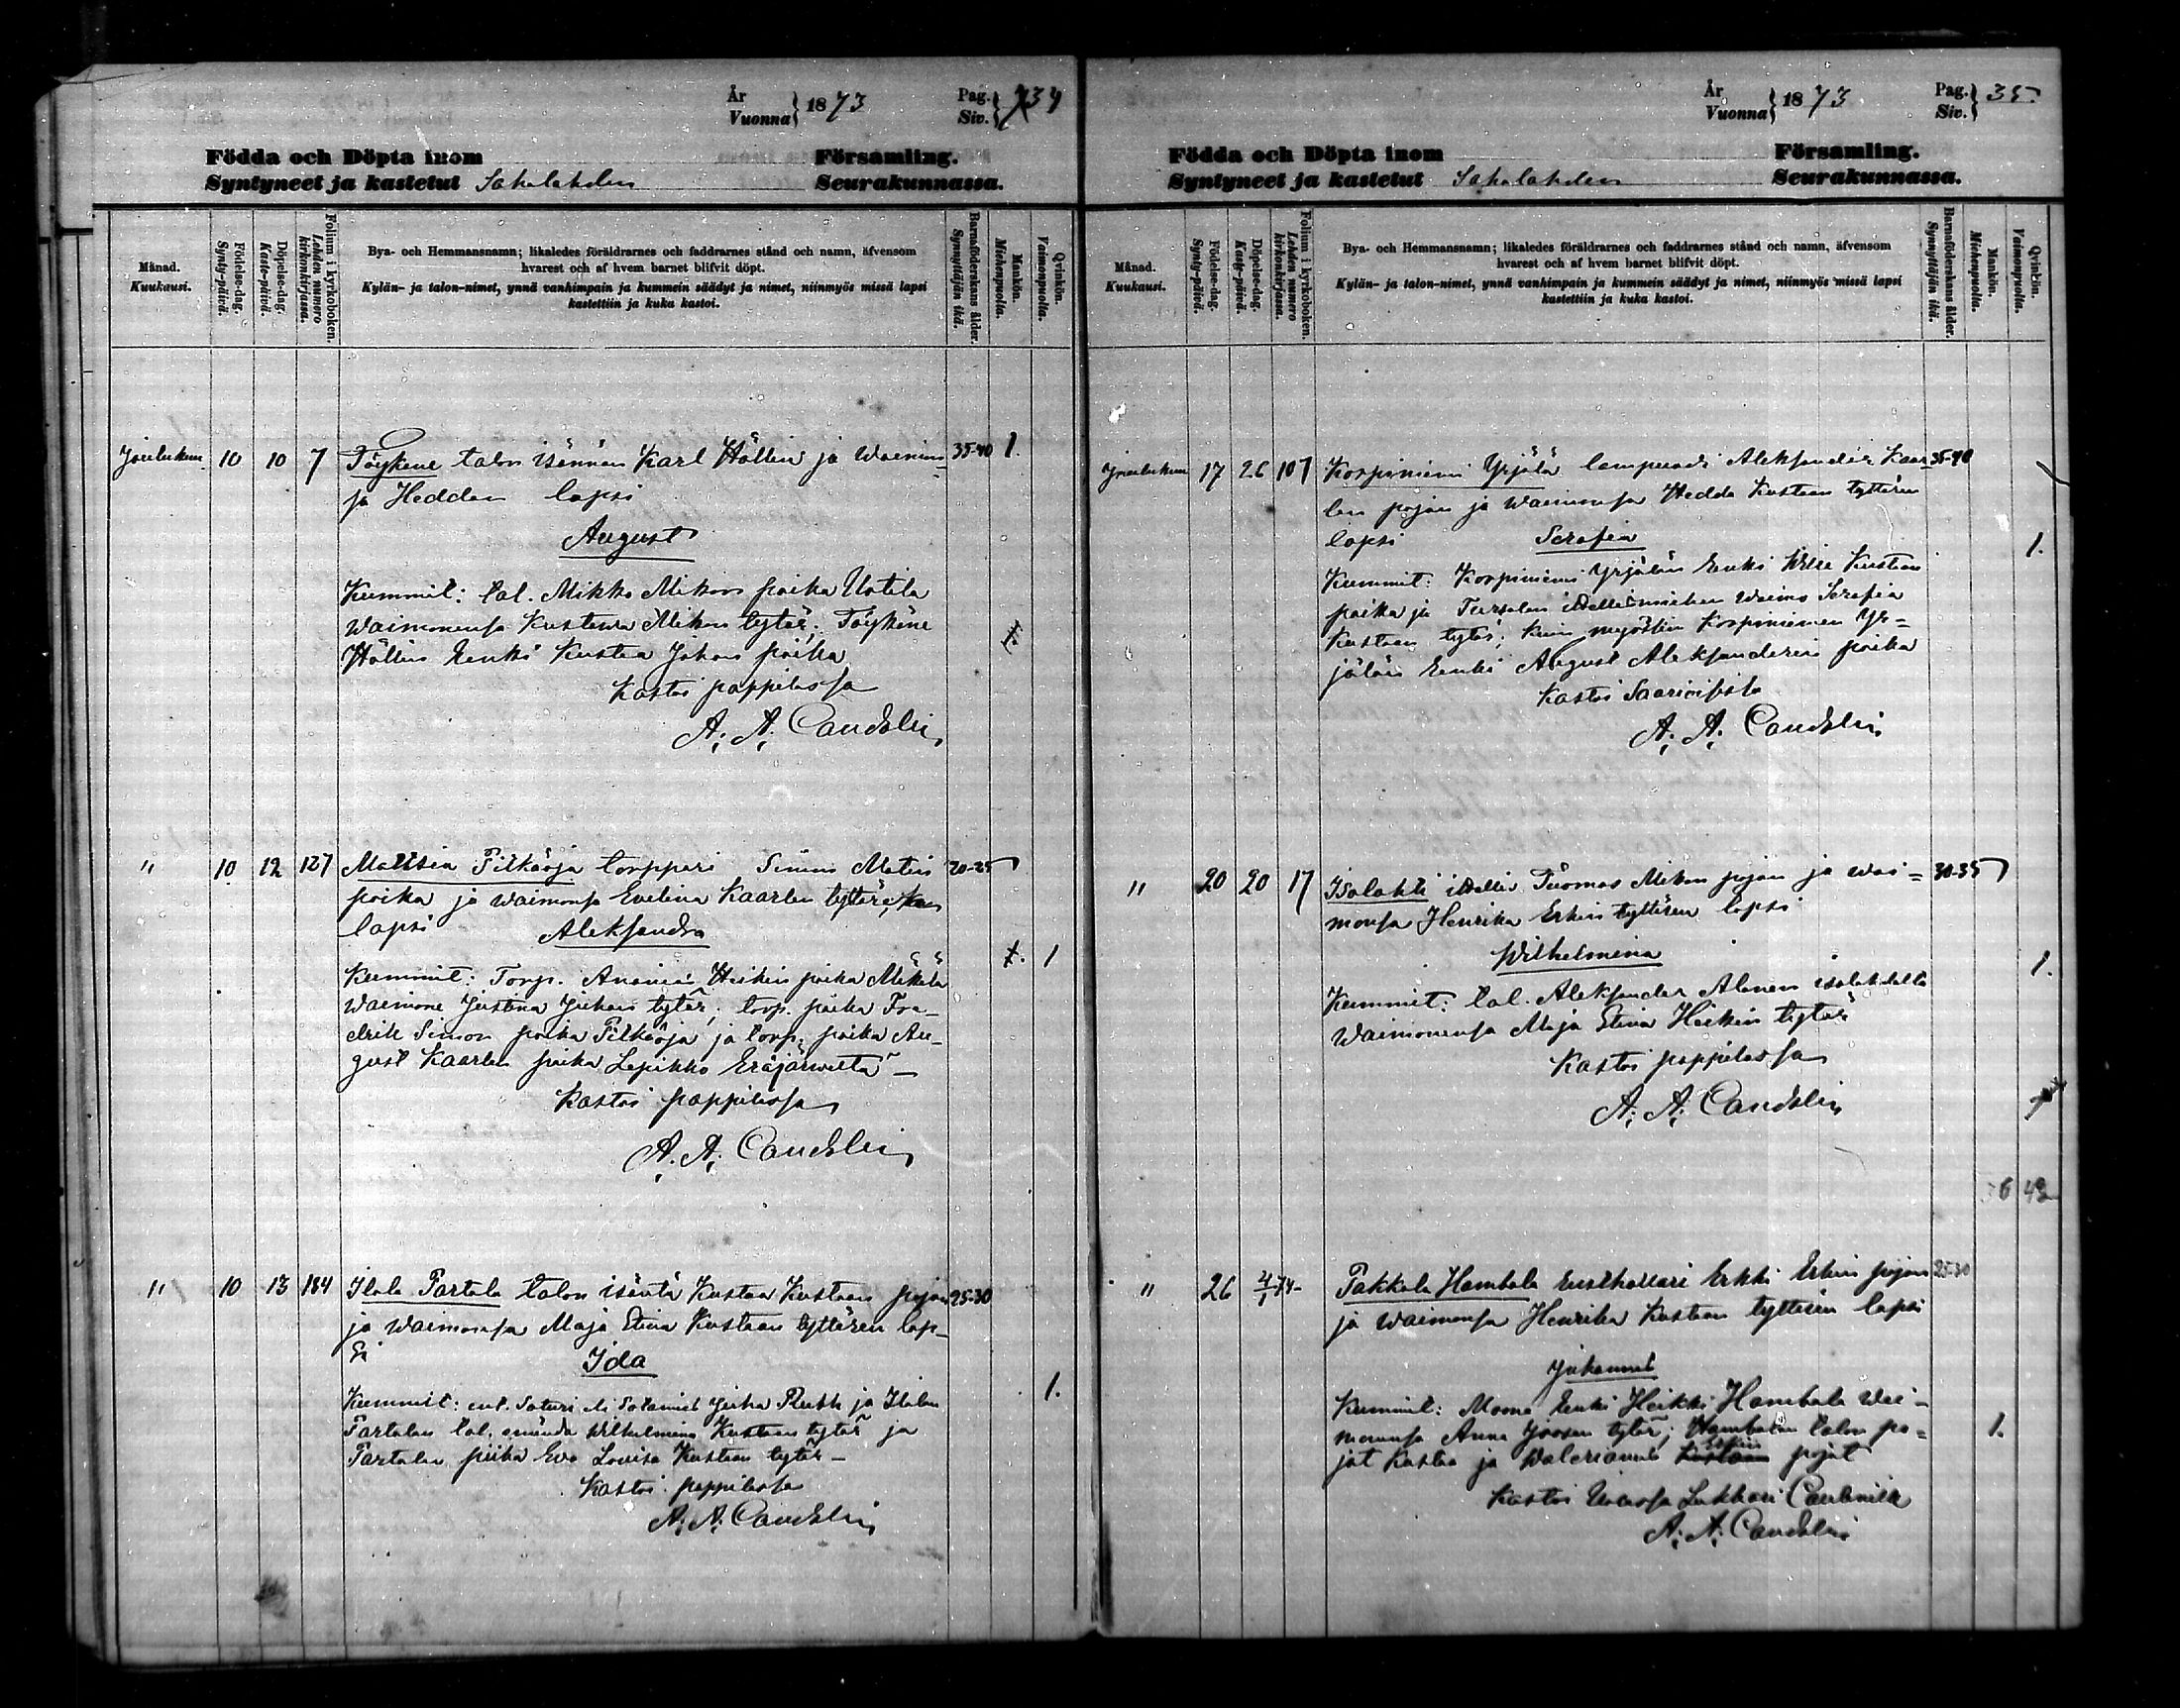 År Vuonna } 1873
Pag. Siv. } 34
Födda och Döpta inom Församling.
Syntyneet ja kastetut Sahalahden Seurakunnassa.
Månad. Kuukausi.
Födelse-dag. Synty-päivä.
Döpelse-dag. Kaste-päivä.
Folium i kyrkoboken. Lehden numero kirkonkirjassa.
Bya- och Hemmansnamn; likaledes föräldrarnes och faddrarnes stånd och namn, äfvensom
hvarest och af hvem barnet blifvit döpt.
Kylän- ja talon-nimet, ynnä vanhimpain ja kummein säädyt ja nimet, niinmyös missä lapsi
kastettiin ja kuka kastoi.
Barnaföderskans ålder. Synnyttäjän ikä.
Mankön. Miehenpuolta.
Qvinkön. Vaimonpuolta.
Joulukuu 10 10 7 Töykene talon isännän Karl Höllin ja Waimon= 35-40 1.
sa Heddan lapsi
August
Kummit: tal. Mikko Mikon poika Uotila
Waimonensa Kustawa Mikon tytär; Töykene
Höllin Renki Kustaa Johan poika
Kastoi pappilassa
A. A. Candelin
" 10 12 127 Mattsia Pitkäoja torppari Simo Matin 20-25
poika ja waimonsa Evelina Kaarlen tyttären
lapsi Aleksandra 1
Kummit: Torp. Ananias Heikin poika Mäkelä
Waimone Justina Juhan tytär; torp. poika Fre-
drik Simon poika Pitkäoja ja torp. poika Au-
gust Kaarlen poika Lepikko Eräjärweltä —
Kastoi pappilassa
A. A. Candelin
" 10 13 184 Ilola Partala talon isäntä Kustaa Kustaan pojan 25-30
ja Waimonsa Maja Stina Kustaan tyttären lap-
si Ida
1.
Kummit: ent. Soturi Juha Rutti ja Ilolan
Partalan tal. emändä Wilhelmina Kustaan tytär ja
Partalan piika Eva Lovisa Kustaan tytär —
Kastoi pappilassa
A. A. Candelin
År Vuonna } 1873
Pag. Siv. } 35.
Födda och Döpta inom Församling.
Syntyneet ja kastetut Sahalahden Seurakunnassa.
Månad. Kuukausi.
Födelse-dag. Synty-päivä.
Döpelse-dag. Kaste-päivä.
Folium i kyrkoboken. Lehden numero kirkonkirjassa.
Bya- och Hemmansnamn; likaledes föräldrarnes och faddrarnes stånd och namn, äfvensom
hvarest och af hvem barnet blifvit döpt.
Kylän- ja talon-nimet, ynnä vanhimpain ja kummein säädyt ja nimet, niinmyös missä lapsi
kastettiin ja kuka kastoi.
Barnaföderskans ålder. Synnyttäjän ikä.
Mankön. Miehenpuolta.
Qvinkön. Vaimonpuolta.
Joulukuu 17 26 107 Korpiniemi Yrjölä lampuodi Aleksander Kaar= 35-40
len pojan ja Waimonsa Hedda Kustaan tyttären
lapsi Serafia 1.
Kummit: Korpiniemi Yrjölän Renki Kustaan
poika ja Tursolan itsellismiehen Waimo Serafia
Kustaan tytär; kuin myöskin Korpiniemen Yr=
jölän Renki August Aleksanderin poika
Kastoi
A. A. Candelin
" 20 20 17 Isolahti itsellis Tuomas Mikon pojan ja Wai= 30-35
monsa Henrika Erkin tyttären lapsi
Wilhelmina
1.
Kummit: tal. Aleksander Alanen isolahdelta
Waimonensa Maja Stina Heikin tytär
Kastoi pappilassa
A. A. Candelin
6 42
" 26 4/1 74- Pakkala Hambala Erkki Erkin pojan 25-30
ja waimonsa Henrika Kustaan tyttären lapsi
Juhannes
Kummit: Renki Heikki Hambala Wai-
monnsa Anna Joosen tytär; Hambalan talon po= 1.
jat Kustaa ja Walerianus Erkin pojat
Kastoi Lukkari
A. A. Candelin